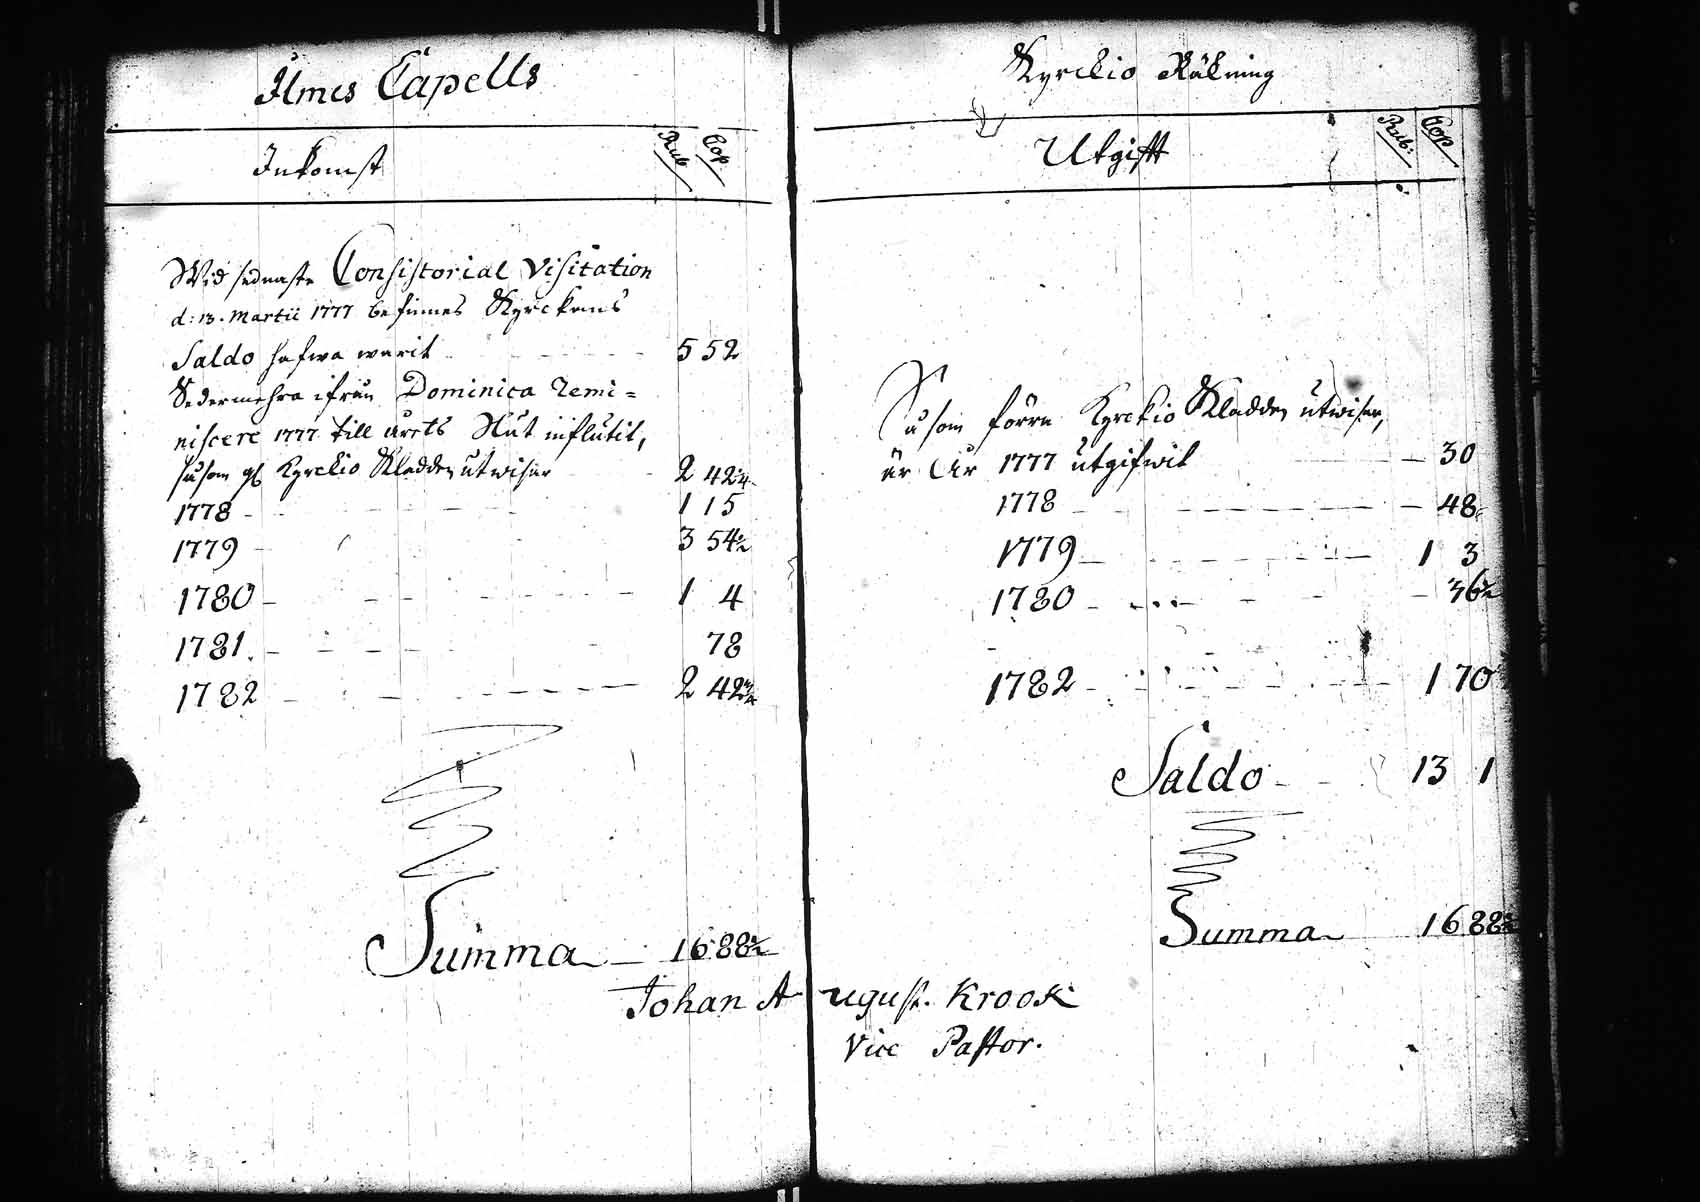 Ilmes Capells
Inkomst Rub Cop
Wid sednaste Consistorial Visitation
d: 13. Martii 1777 befinnes Kyrckans
Saldo hafwa warit 5 52
Sedermehra ifrån Dominica Remi=
niscere 1777 till årets Slut influtit,
såsom Kyrckio Kladden utwisar 2 42 1/4
1778 1 15
1779 3 54 1/2
1780 1 4
1781. 78
1782 2 42 3/4
Summa 16 88 1/2
Kyrckio Räkning
Utgifft Rub: Cop
Såsom förre Kyrckio Kladden utwisar,
är År 1777 utgifwit 30
1778 48
1779 1 3
1780 36 1/2
1782 1 70
Saldo 13 1
Summa 16 88 1/2
Johan August. Krook
Vice Pastor.